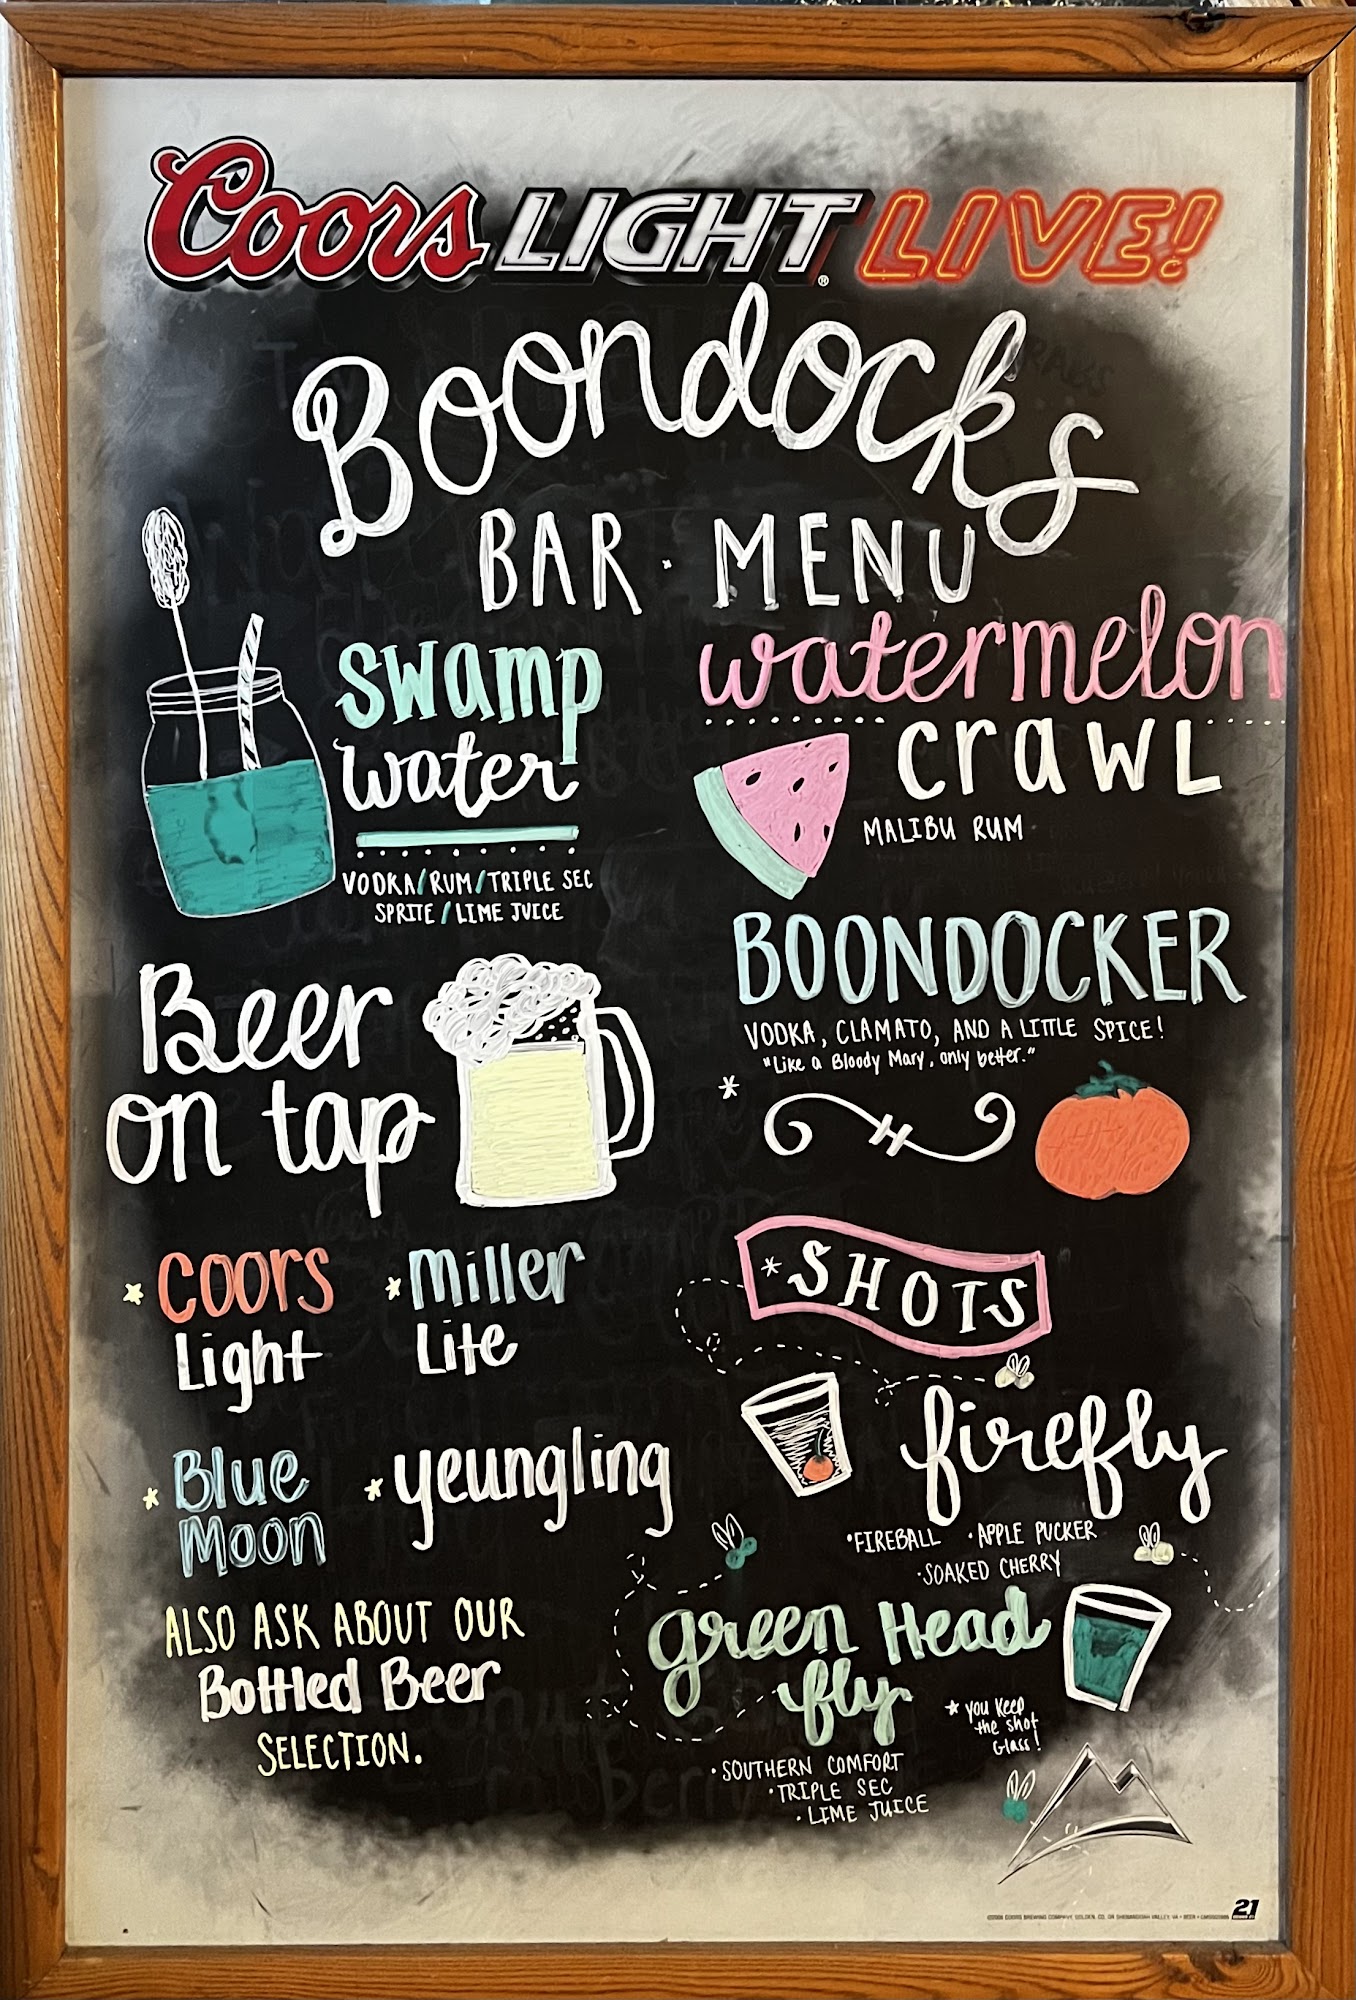 Coors LIGHT® LIVE!
Boondocks
BAR · MENU
swamp
water
VODKA/RUM/TRIPLE SEC
SPRITE/LIME JUICE
watermelon
crawl
MALIBU RUM
BOONDOCKER
VODKA, CLAMATO, AND A LITTLE SPICE!
"Like a Bloody Mary, only better."
*
Beer
on tap
* COORS
Light
* Miller
Lite
* Blue
Moon
* yeungling
ALSO ASK ABOUT OUR
Bottled Beer
SELECTION.
* SHOTS
firefly
• FIREBALL • APPLE PUCKER
• SOAKED CHERRY
green Head
fly
* you keep
the shot
Glass!
• SOUTHERN COMFORT
• TRIPLE SEC
• LIME JUICE
21